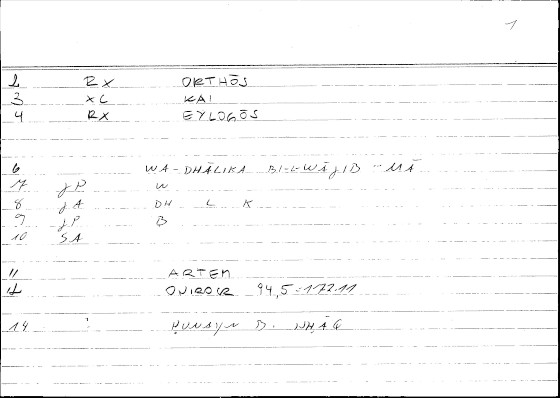 1
2 RX ORTHŌS
3 XC KAI
4 RX EYLOGŌS
6 WA-DHĀLIKA BI-L-WĀJIB MĀ
7 JP W
8 JA DH L K
9 JP B
10 SA
11 ARTEM
12 ONIROCR 94,5 = 172.11
14 : ḤUNAYN B. ISḤĀQ